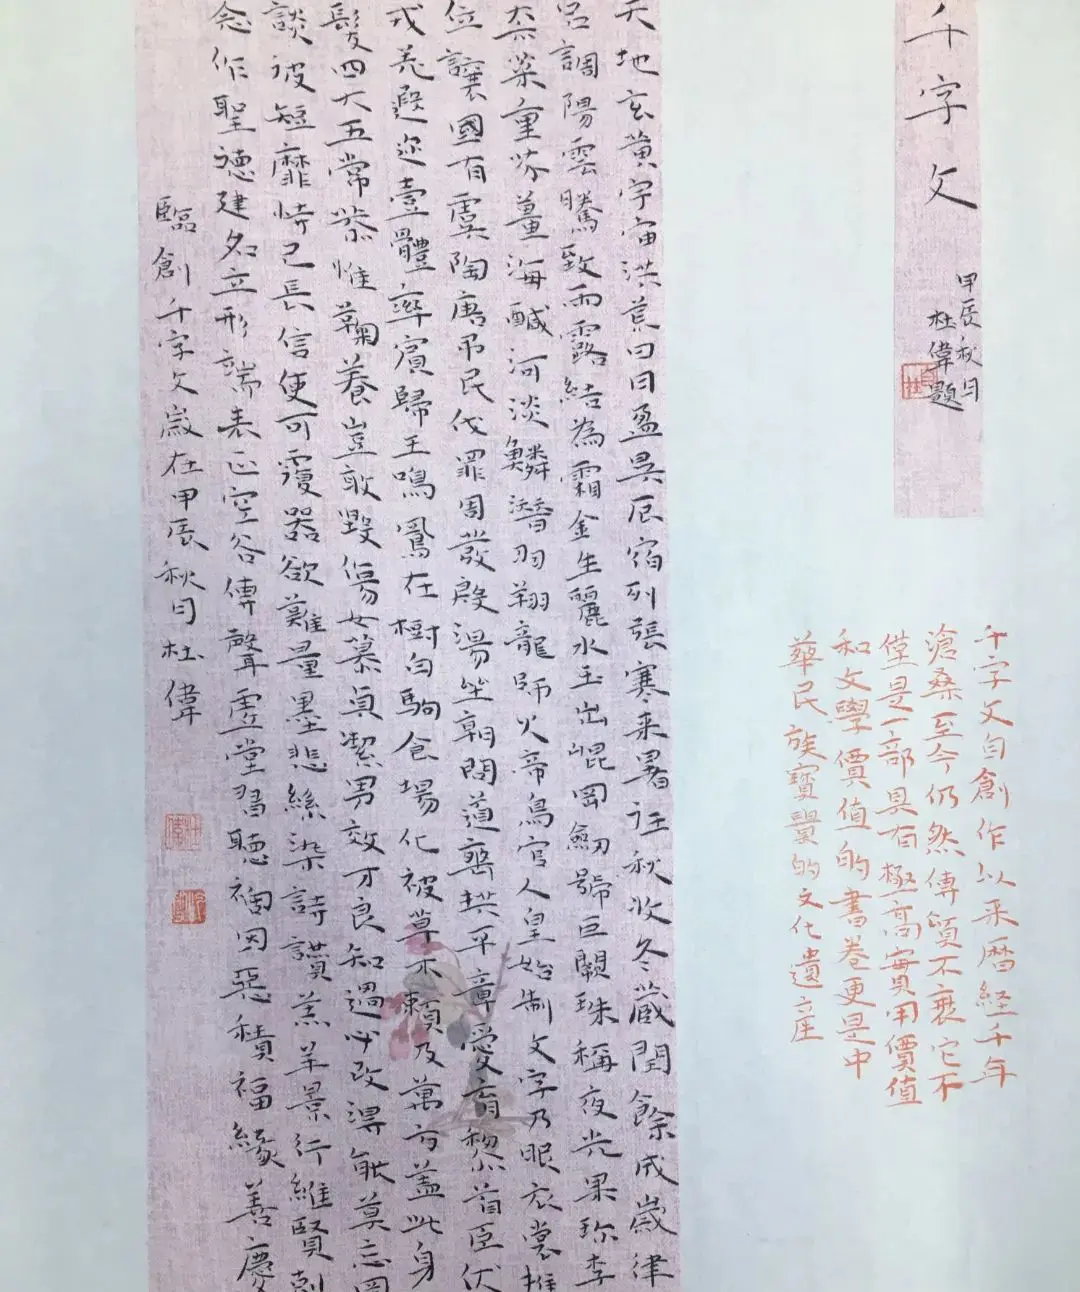 千字文
甲辰秋月
杜偉題
千字文自創作以来曆経千年
滄桑至今仍然傳頌不衰它不
僅是一部具有極高實用價值
和文學價值的書卷更是中
華民族寶貴的文化遺産
天地玄黄宇宙洪荒日月盈昃辰宿列張寒来暑往秋收冬蔵閏餘成歲律
吕調陽雲騰致雨露結為霜金生麗水玉出崐岡劒號巨闕珠稱夜光果珍李
柰菜重芥薑海鹹河淡鱗潛羽翔龍師火帝鳥官人皇始制文字乃服衣裳推
位讓國有虞陶唐吊民伐罪周發殷湯坐朝問道垂拱平章愛育黎首臣伏
戎羌遐迩壹體率賓歸王鳴鳳在樹白駒食場化被草木頼及萬方蓋此身
髮四大五常恭惟鞠養豈敢毀傷女慕貞潔男效才良知過必改得能莫忘罔
談彼短靡恃己長信使可覆器欲難量墨悲絲染詩讚羔羊景行維賢剋
念作聖德建名立形端表正空谷傳聲虚堂習聽禍因惡積福緣善慶
臨創千字文歲在甲辰秋月杜偉